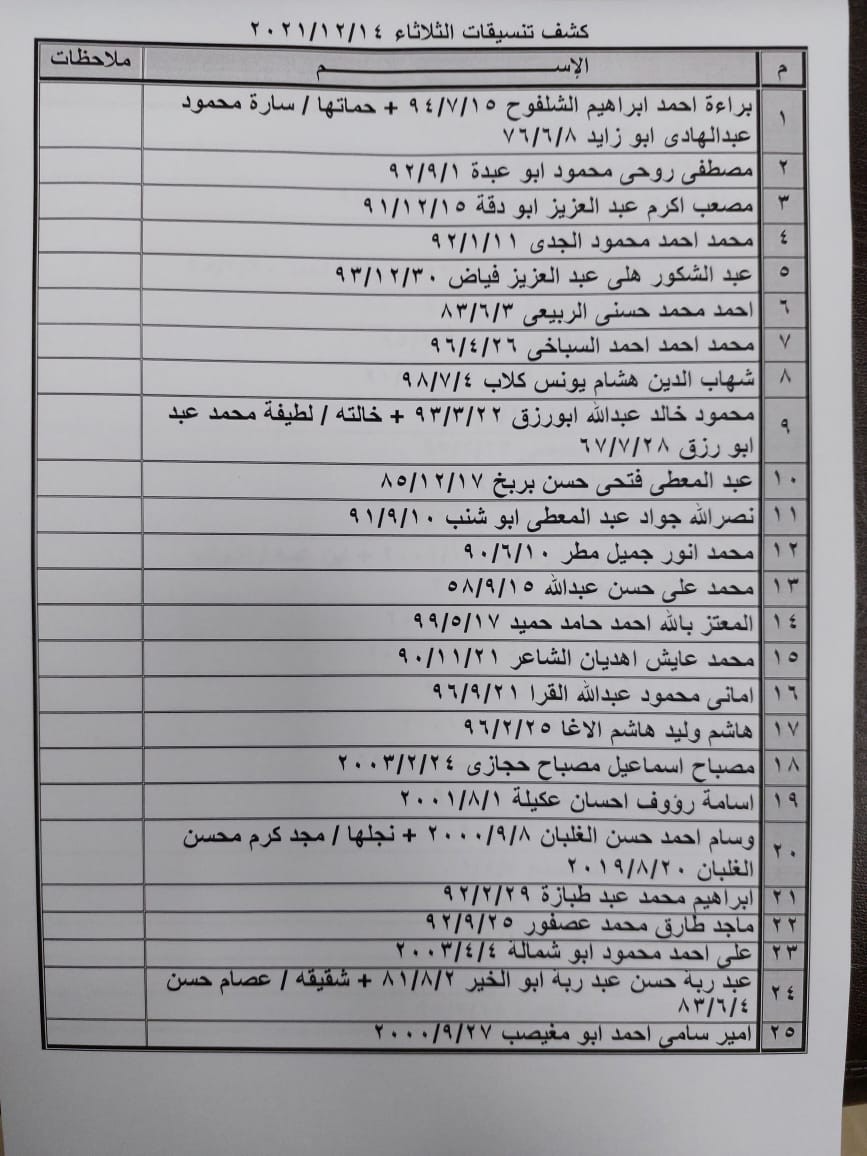 كشف تنسيقات الثلاثاء ٢٠٢١/١٢/١٤
م الإســــــــم ملاحظات
١ براءة احمد ابراهيم الشلفوح ٩٤/٧/١٥ + حماتها / سارة محمود
عبدالهادى ابو زايد ٧٦/٦/٨
٢ مصطفى روحى محمود ابو عبدة ٩٢/٩/١
٣ مصعب اكرم عبد العزيز ابو دقة ٩١/١٢/١٥
٤ محمد احمد محمود الجدى ٩٢/١/١١
٥ عبد الشكور هلى عبد العزيز فياض ٩٣/١٢/٣٠
٦ احمد محمد حسنى الربيعى ٨٣/٦/٣
٧ محمد احمد احمد السباخى ٩٦/٤/٢٦
٨ شهاب الدين هشام يونس كلاب ٩٨/٧/٤
٩ محمود خالد عبدالله ابورزق ٩٣/٣/٢٢ + خالته / لطيفة محمد عبد
ابو رزق ٦٧/٧/٢٨
١٠ عبد المعطى فتحى حسن بربخ ٨٥/١٢/١٧
١١ نصرالله جواد عبد المعطى ابو شنب ٩١/٩/١٠
١٢ محمد انور جميل مطر ٩٠/٦/١٠
١٣ محمد على حسن عبدالله ٥٨/٩/١٥
١٤ المعتز بالله احمد حامد حميد ٩٩/٥/١٧
١٥ محمد عايش اهديان الشاعر ٩٠/١١/٢١
١٦ امانى محمود عبدالله القرا ٩٦/٩/٢١
١٧ هاشم وليد هاشم الاغا ٩٦/٢/٢٥
١٨ مصباح اسماعيل مصباح حجازى ٢٠٠٣/٢/٢٤
١٩ اسامة رؤوف احسان عكيلة ٢٠٠١/٨/١
٢٠ وسام احمد حسن الغلبان ٢٠٠٠/٩/٨ + نجلها / مجد كرم محسن
الغلبان ٢٠١٩/٨/٢٠
٢١ ابراهيم محمد عبد طبازة ٩٢/٢/٢٩
٢٢ ماجد طارق محمد عصفور ٩٢/٩/٢٥
٢٣ على احمد محمود ابو شمالة ٢٠٠٣/٤/٤
٢٤ عبد ربة حسن عبد ربة ابو الخير ٨١/٨/٢ + شقيقه / عصام حسن
٨٣/٦/٤
٢٥ امير سامي احمد ابو مغيصب ٢٠٠٠/٩/٢٧